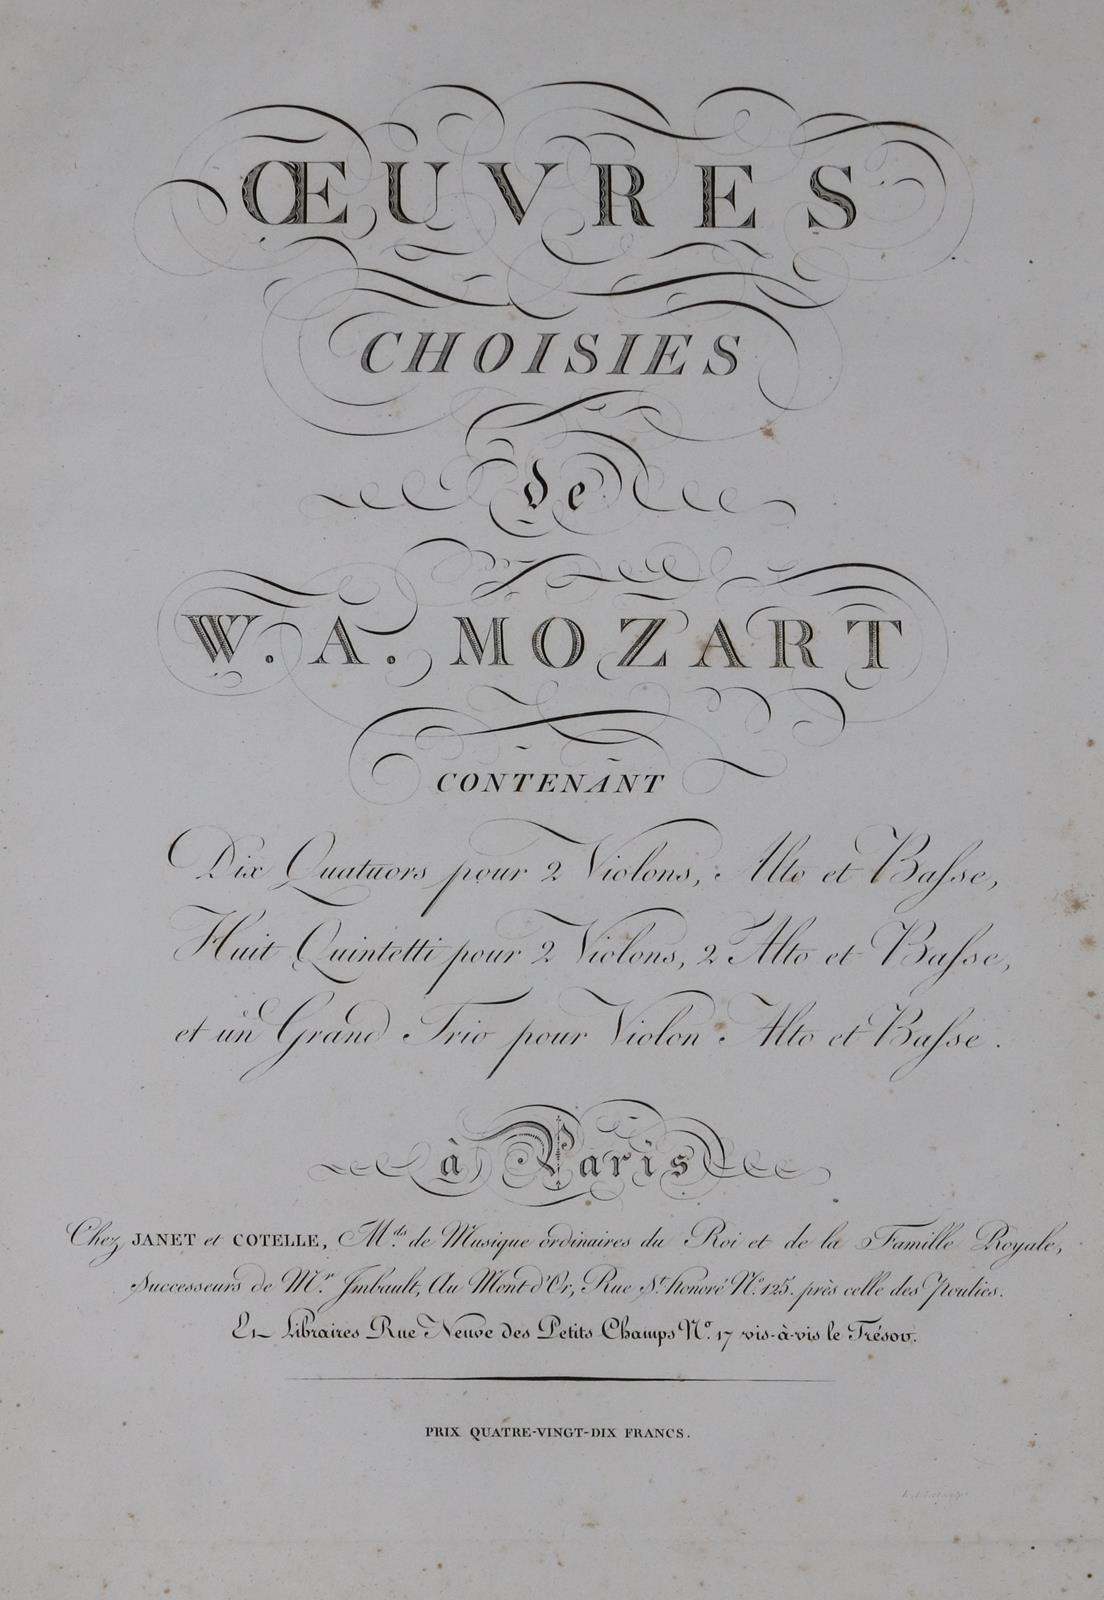 ŒUVRES
CHOISIES
de
W. A. MOZART
CONTENANT
Dix Quatuors pour 2 Violons, Alto et Baſse,
Huit Quintetti pour 2 Violons, 2 Alto et Baſse,
et un Grand Trio pour Violon Alto et Baſse.
à Paris
Chez JANET et COTELLE, M.ds de Musique ordinaires du Roi et de la Famille Royale,
Successeurs de M.r Imbault, Au Mont d'Or, Rue S.t honoré N.o 125. près celle des Poulies.
Et Libraires Rue Neuve des Petits Champs N.o 17 vis-à-vis le Trésor.
PRIX QUATRE-VINGT-DIX FRANCS.